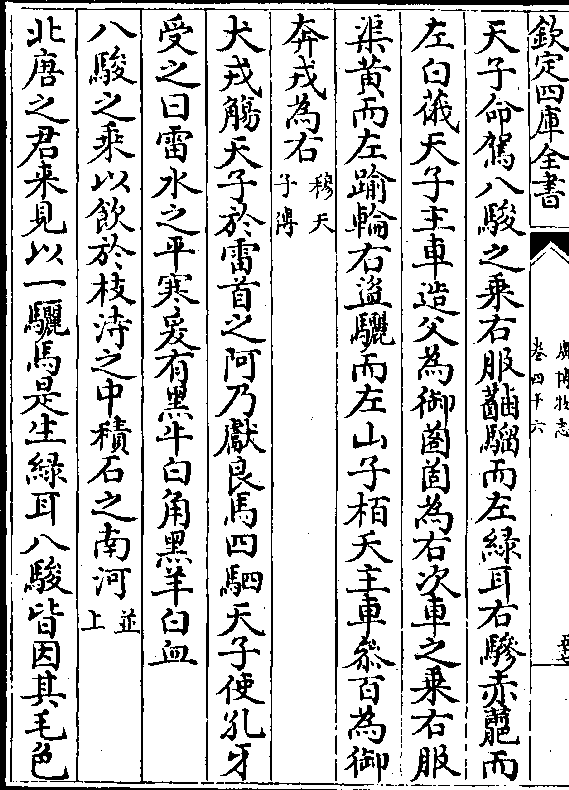 欽定四庫全書
廣博物志
卷四十六
天子命駕八駿之乘右服𩧢騮而左緑耳右驂赤𩧉而
左白𣚘天子主車造父為御𦮼𦮼為右次車之乘右服
渠黄而左踰輪右盜驪而左山子栢夭主車叅百為御
奔戎為右穆天子傳
犬戎觴天子於雷首之阿乃獻良馬四駟天子使孔牙
受之曰雷水之平寒爰有黑牛白角黑羊白血
八駿之乘以飲於枝洔之中積石之南河並上
北唐之君来見以一驪馬是生緑耳八駿皆因其毛色